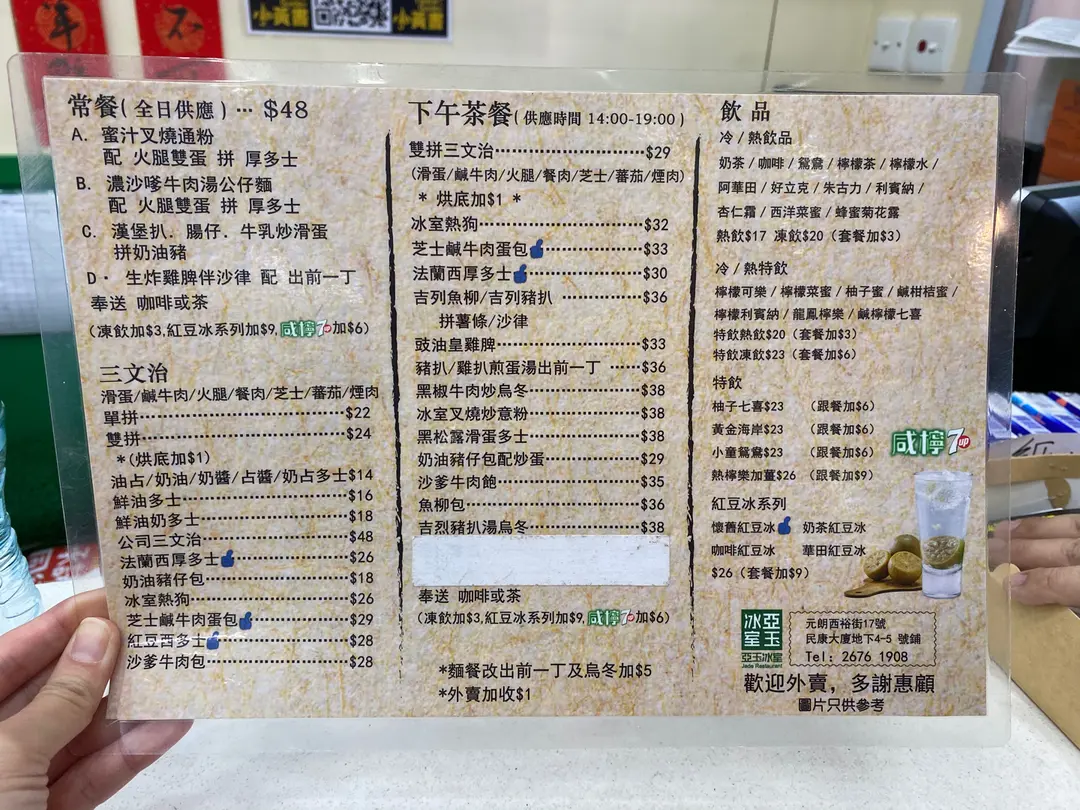 年
不
小黃書
小黃書
常餐(全日供應)… $48
A. 蜜汁叉燒通粉
配 火腿雙蛋 拼 厚多士
B. 濃沙嗲牛肉湯公仔麵
配 火腿雙蛋 拼 厚多士
C. 漢堡扒. 腸仔. 牛乳炒滑蛋
拼奶油豬
D· 生炸雞脾伴沙律 配 出前一丁
奉送 咖啡或茶
(凍飲加$3,紅豆冰系列加$9,咸檸7加$6)
三文治
滑蛋/鹹牛肉/火腿/餐肉/芝士/蕃茄/煙肉
單拼……$22
雙拼……$24
*(烘底加$1)
油占/奶油/奶醬/占醬/奶占多士$14
鮮油多士……$16
鮮油奶多士……$18
公司三文治……$48
法蘭西厚多士……$26
奶油豬仔包……$18
冰室熱狗……$26
芝士鹹牛肉蛋包……$29
紅豆西多士……$28
沙爹牛肉包……$28
下午茶餐(供應時間 14:00-19:00)
雙拼三文治……$29
(滑蛋/鹹牛肉/火腿/餐肉/芝士/蕃茄/煙肉)
* 烘底加$1 *
冰室熱狗……$32
芝士鹹牛肉蛋包……$33
法蘭西厚多士……$30
吉列魚柳/吉列豬扒……$36
拼薯條/沙律
豉油皇雞脾……$33
豬扒/雞扒煎蛋湯出前一丁……$36
黑椒牛肉炒烏冬……$38
冰室叉燒炒意粉……$38
黑松露滑蛋多士……$38
奶油豬仔包配炒蛋……$29
沙爹牛肉飽……$35
魚柳包……$36
吉烈豬扒湯烏冬……$38
奉送 咖啡或茶
(凍飲加$3,紅豆冰系列加$9,咸檸7加$6)
*麵餐改出前一丁及烏冬加$5
*外賣加收$1
飲品
冷/熱飲品
奶茶/咖啡/鴛鴦/檸檬茶/檸檬水/
阿華田/好立克/朱古力/利賓納/
杏仁霜/西洋菜蜜/蜂蜜菊花露
熱飲$17 凍飲$20(套餐加$3)
冷/熱特飲
檸檬可樂/檸檬菜蜜/柚子蜜/鹹柑桔蜜/
檸檬利賓納/龍鳳檸樂/鹹檸檬七喜
特飲熱飲$20(套餐加$3)
特飲凍飲$23(套餐加$6)
特飲
柚子七喜$23 (跟餐加$6)
黃金海岸$23 (跟餐加$6)
小童鴛鴦$23 (跟餐加$6)
熱檸樂加薑$26 (跟餐加$9)
咸檸7up
紅豆冰系列
懷舊紅豆冰 奶茶紅豆冰
咖啡紅豆冰 華田紅豆冰
$26(套餐加$9)
亞玉冰室
亞玉冰室
Jade Restaurant
元朗西裕街17號
民康大廈地下4-5 號鋪
Tel: 2676 1908
歡迎外賣, 多謝惠顧
圖片只供參考